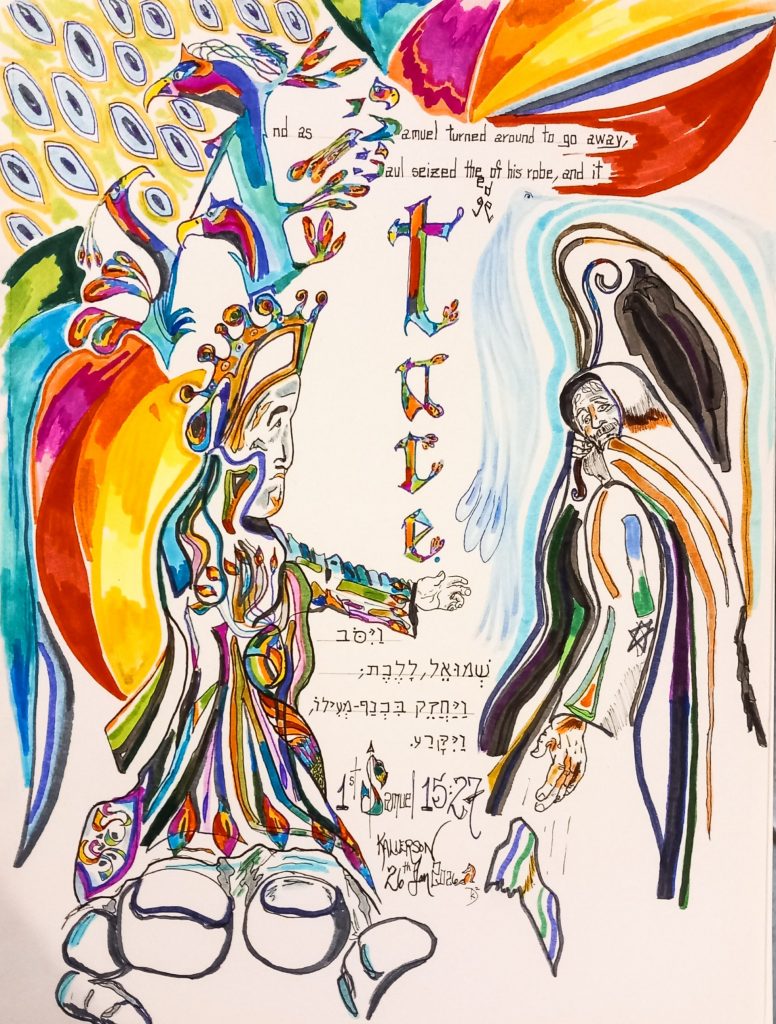 And as Samuel turned around to go away,
Saul seized the edge of his robe, and it
tore.
וַיִּסֹּב
שְׁמוּאֵל, לָלֶכֶת;
וַיַּחֲזֵק בִּכְנַף-מְעִילוֹ,
וַיִּקָּרַע.
1st Samuel 15:27
26th Jan